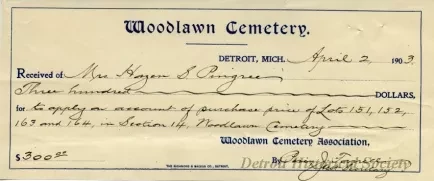 Woodlawn Cemetery.
DETROIT, MICH. April 2, 1903.
Received of Mrs Hazen S. Pingree
Three hundred DOLLARS,
for to apply on account of purchase price of Lots 151, 152,
163 and 164, in Section 14, Woodlawn Cemetery
Woodlawn Cemetery Association,
$300.00 By
Detroit Historical Society
THE RICHMOND & BACKUS CO., DETROIT.